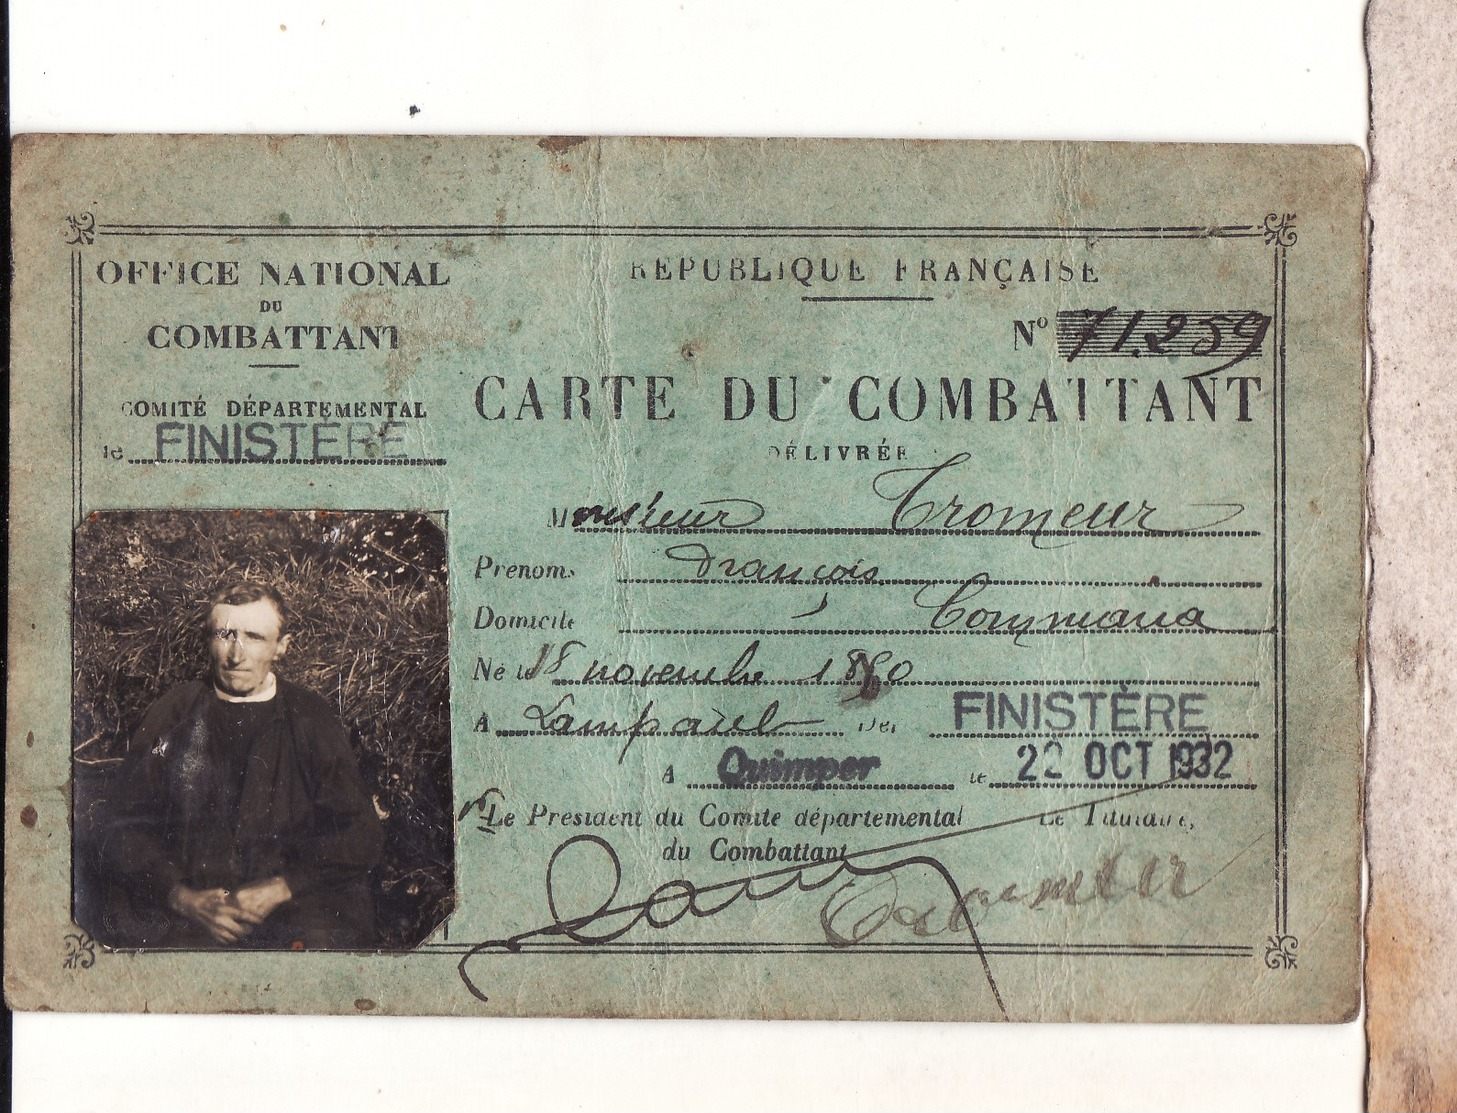 OFFICE NATIONAL
DU
COMBATTANT
COMITÉ DÉPARTEMENTAL
de FINISTÈRE
RÉPUBLIQUE FRANÇAISE
N° 71.259
CARTE DU COMBATTANT
DÉLIVRÉE
Monsieur Tromeur
Prénoms François
Domicile Commana
Né le 18 novembre 1880
A Lampaul Dép FINISTÈRE
A Quimper le 22 OCT 1932
Le Président du Comité départemental
du Combattant
Le Titulaire,
Tromeur